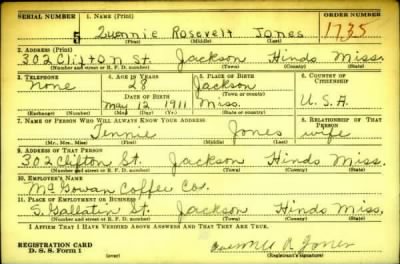 SERIAL NUMBER 1. NAME (Print) ORDER NUMBER
5 Quonnie Rosevelt Jones 1735
(First) (Middle) (Last)
2. ADDRESS (Print)
302 Clifton St. Jackson Hinds Miss.
(Number and street or R. F. D. number) (Town) (County) (State)
3. TELEPHONE 4. AGE IN YEARS 5. PLACE OF BIRTH 6. COUNTRY OF CITIZENSHIP
None 28 Jackson
(Town or county)
DATE OF BIRTH
May 12 1911 Miss. U.S.A.
(Exchange) (Number) (Mo.) (Day) (Yr.) (State or country)
7. NAME OF PERSON WHO WILL ALWAYS KNOW YOUR ADDRESS 8. RELATIONSHIP OF THAT PERSON
Jennie Jones wife
(Mr., Mrs., Miss) (First) (Middle) (Last)
9. ADDRESS OF THAT PERSON
302 Clifton St. Jackson Hinds Miss.
(Number and street or R. F. D. number) (Town) (County) (State)
10. EMPLOYER'S NAME
McGowan Coffee Co.
11. PLACE OF EMPLOYMENT OR BUSINESS
S. Gallatin St. Jackson Hinds Miss.
(Number and street or R. F. D. number) (Town) (County) (State)
I AFFIRM THAT I HAVE VERIFIED ABOVE ANSWERS AND THAT THEY ARE TRUE.
REGISTRATION CARD
D. S. S. Form 1 (over) R Jones
(Registrant's signature)